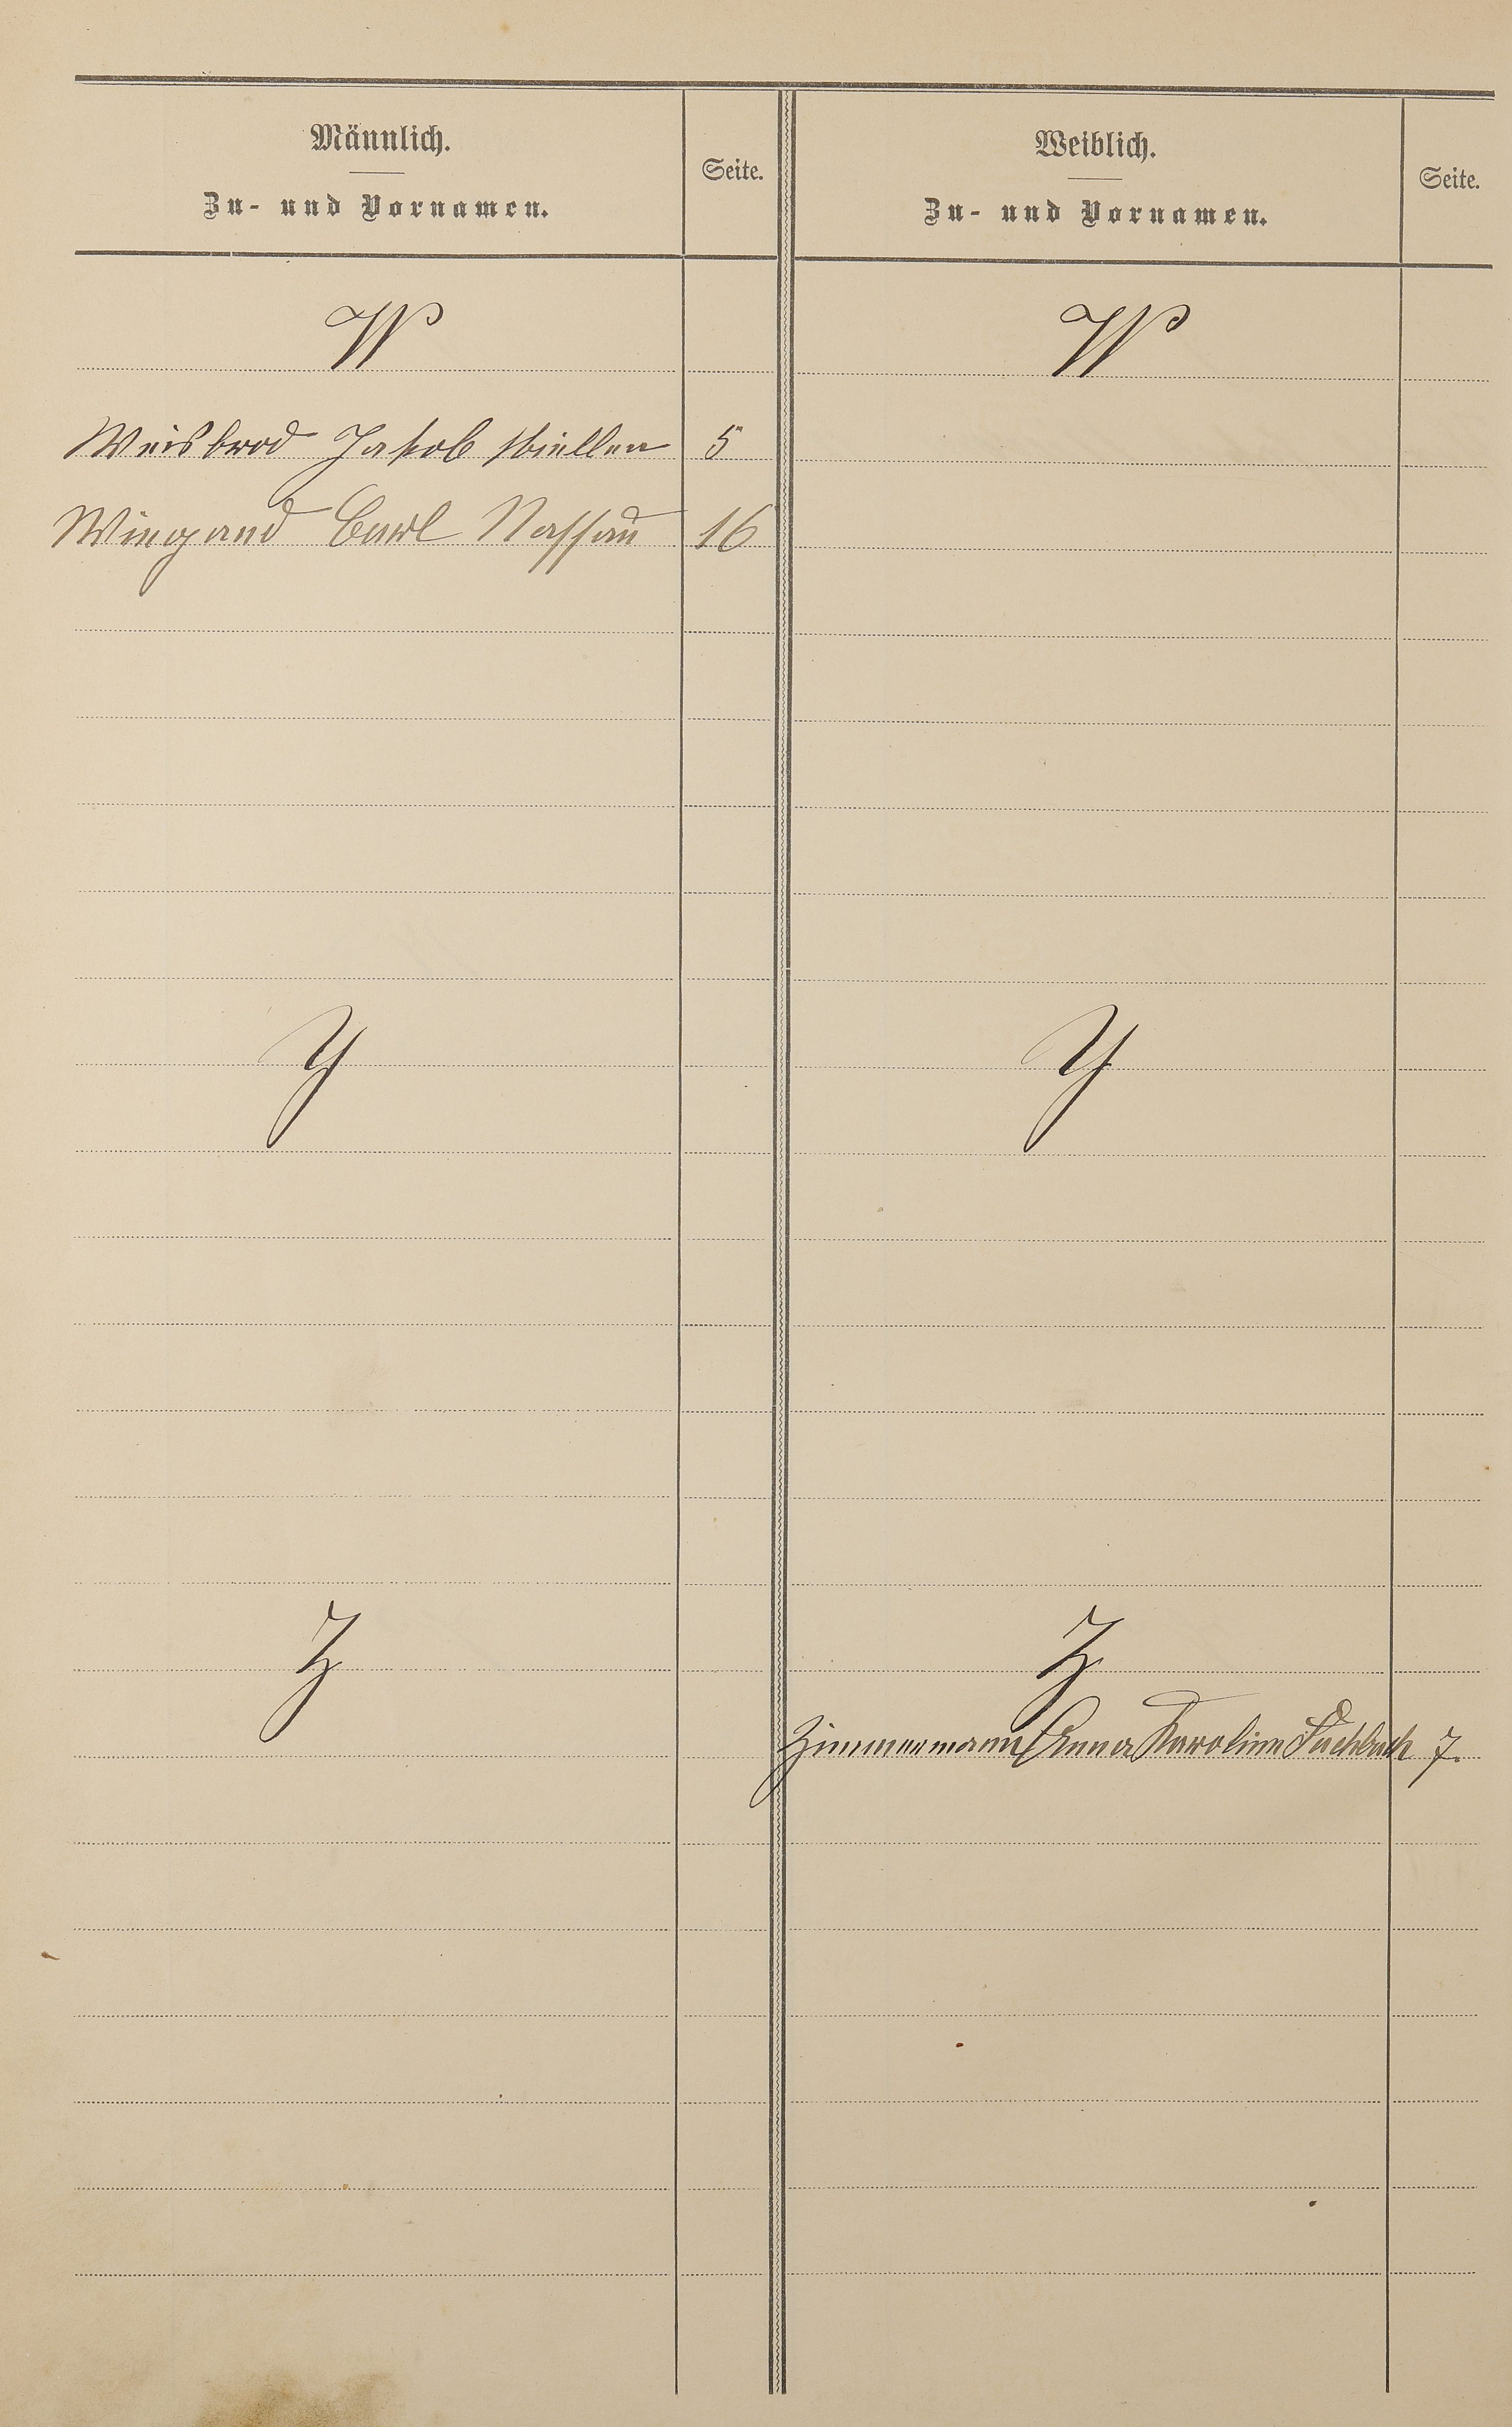 Männlich.
Zu- und Vornamen.
Seite.
Weiblich.
Zu- und Vornamen.
Seite.
W
W
Weisbrod Jakob 5
Wiegand Carl Nassau 16
Y
Y
Z
Z
Zimmermann Anna Karoline Fachbach 7.